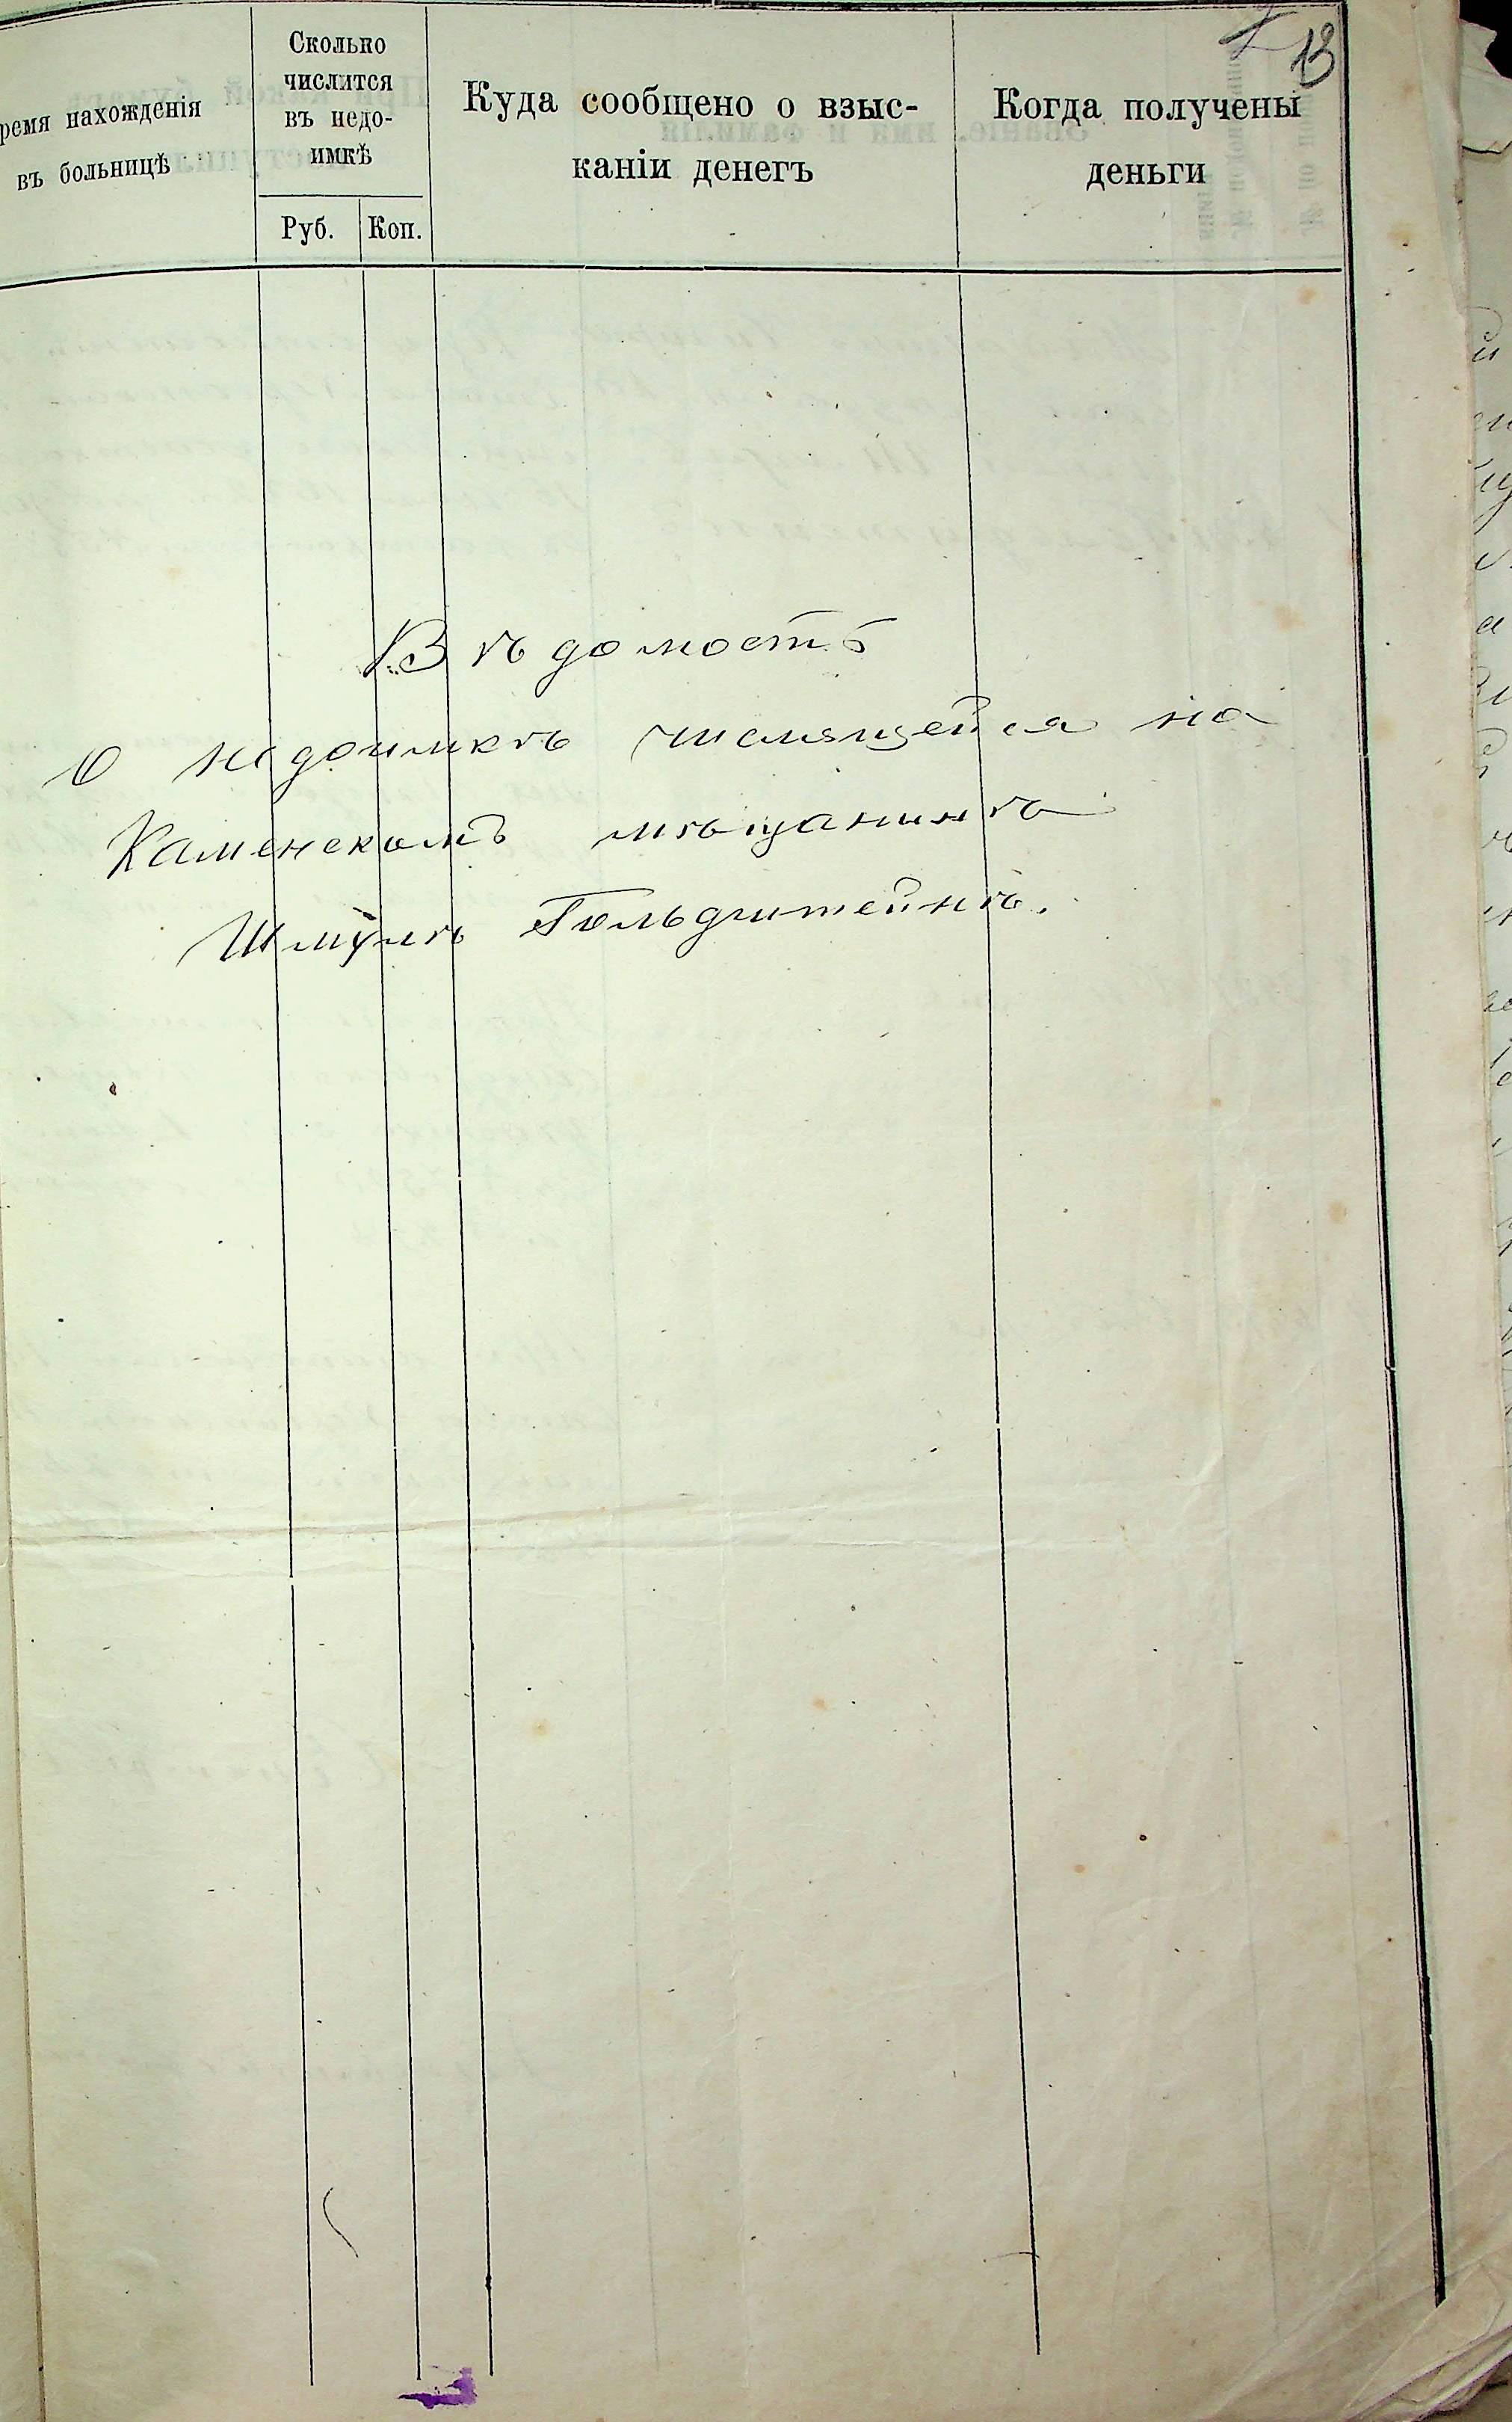 13
ремя нахожденія
въ больницѣ
Сколько
числится
въ недо-
имкѣ
Руб. Коп.
Куда сообщено о взыс-
каніи денегъ
Когда получены
деньги
Вѣдомость
О недоимкѣ числящейся на
Каменскомъ мѣщанинѣ
Шмулѣ Гольдштейнѣ.